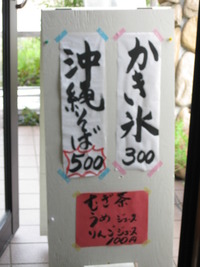 かき氷
300
沖縄そば
500
むぎ茶
うめジュース
りんごジュース
100円